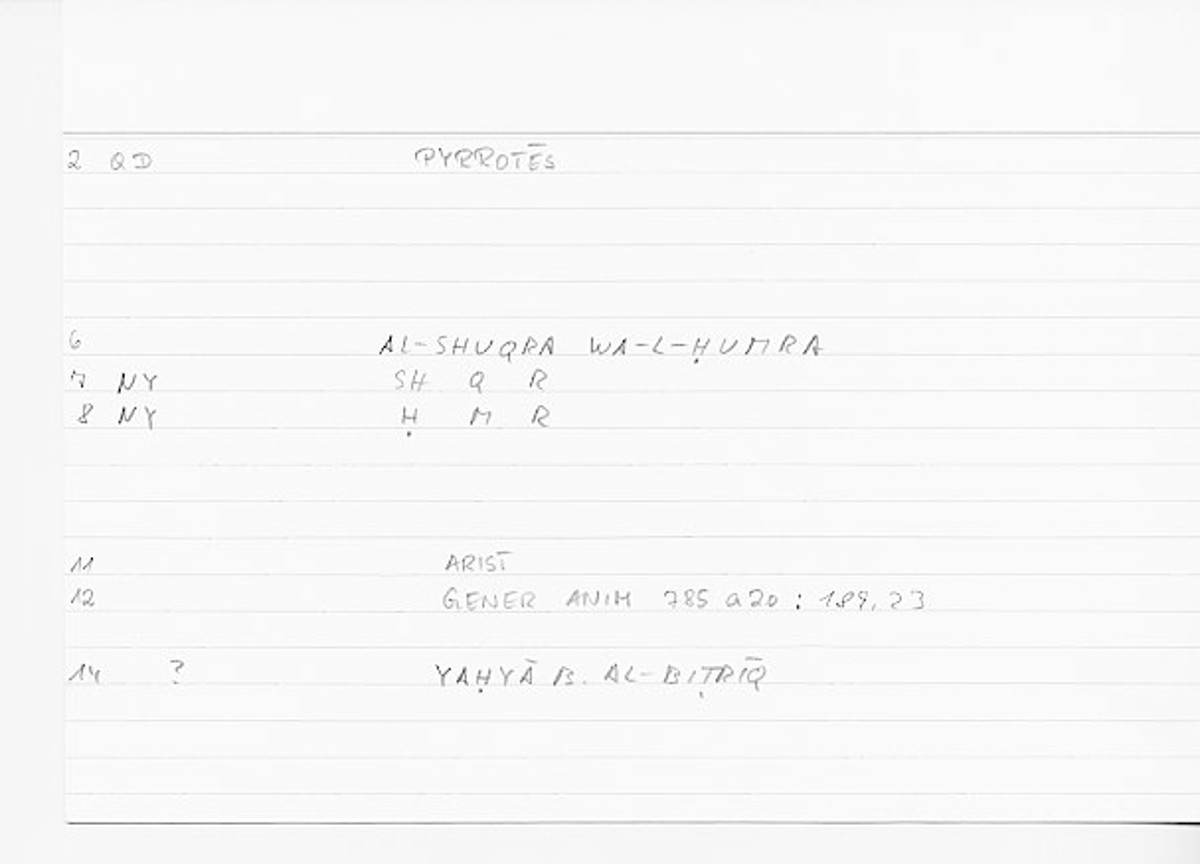 2 QD PYRROTĒS
6 AL-SHUQRA WA-L-ḤUMRA
7 NY SH Q R
8 NY Ḥ M R
11 ARIST
12 GENER ANIM 785 a20 : 189, 23
14 ? YAḤYĀ B. AL-BIṬRĪQ